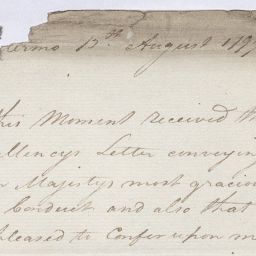 ermo 13th August 1799
this Moment received th
ellencys Letter conveying
Majestys most gracio
Conduct and also that
pleased to Confer upon m